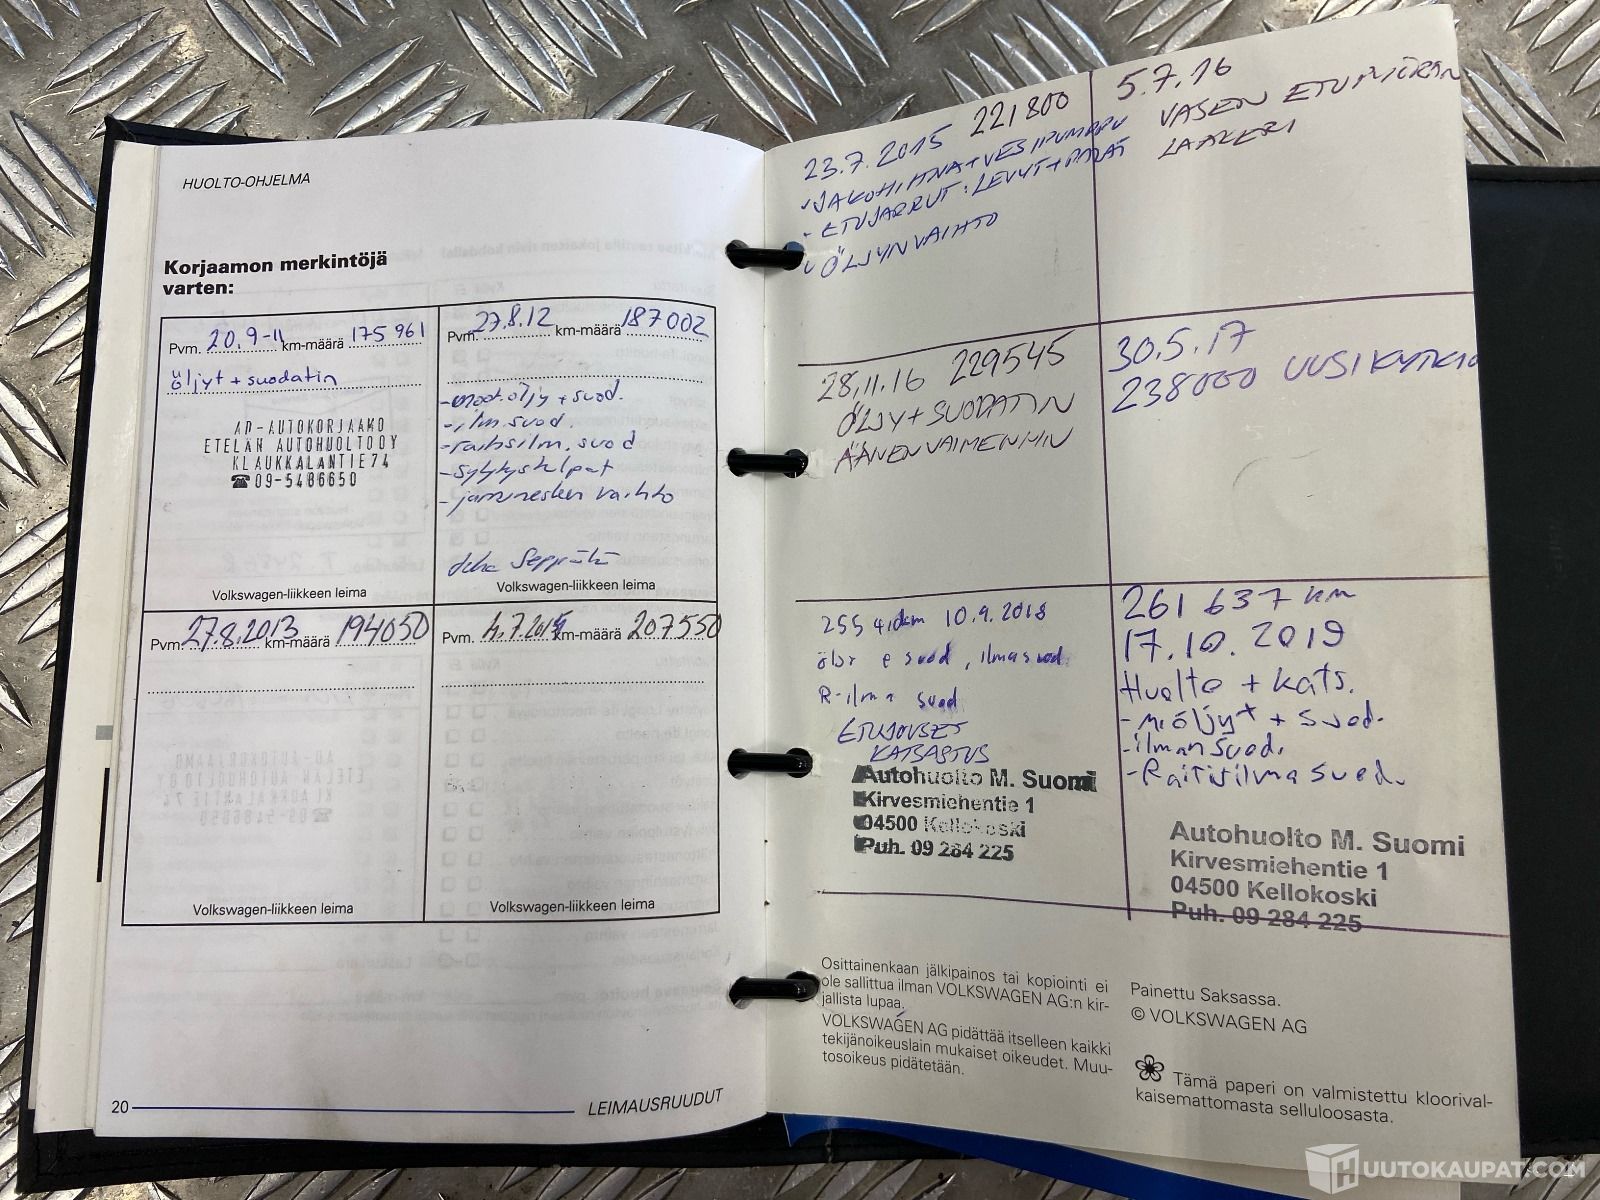 HUOLTO-OHJELMA
Korjaamon merkintöjä
varten:
Pvm. 20.9-11 km-määrä 175 961
öljyt + suodatin
AD-AUTOKORJAAMO
ETELÄN AUTOHUOLTO OY
KLAUKKALANTIE 74
☎ 09-5486650
Volkswagen-liikkeen leima
Pvm. 27.8.12 km-määrä 187002
-moot.öljy + suod.
-ilm.suod.
-raitisilm.suod
-sytytystulpat
-jarrunesteen vaihto
Seppälä
Volkswagen-liikkeen leima
Pvm. 27.8.2013 km-määrä 194050
Volkswagen-liikkeen leima
Pvm. 4.7.2014 km-määrä 207550
Volkswagen-liikkeen leima
20
LEIMAUSRUUDUT
23.7.2015 221800
-JAKOHIHNA+VESIPUMPPU
-ETUJARRUT: LEVYT+PALAT
ÖLJYNVAIHTO
5.7.16
VASEN ETUPYÖRÄN
LAAKERI
28.11.16 229545
ÖLJY+SUODATIN
ÄÄNENVAIMENNIN
30.5.17
238000 UUSI KYTKIN
10.9.2018
suod, ilmasuod.
R-ilma suod
ETUJOUSET
KATSASTUS
Autohuolto M. Suomi
Kirvesmiehentie 1
04500 Kellokoski
Puh. 09 284 225
261 637 km
17.10.2019
Huolto + kats.
-möljyt + suod.
-ilmansuod.
-Raitisilmasuod.
Autohuolto M. Suomi
Kirvesmiehentie 1
04500 Kellokoski
Puh. 09 284 225
Osittainenkaan jälkipainos tai kopiointi ei
ole sallittua ilman VOLKSWAGEN AG:n kir-
jallista lupaa.
VOLKSWAGEN AG pidättää itselleen kaikki
tekijänoikeuslain mukaiset oikeudet. Muu-
tosoikeus pidätetään.
Painettu Saksassa.
© VOLKSWAGEN AG
Tämä paperi on valmistettu kloorival-
kaisemattomasta selluloosasta.
HUUTOKAUPAT.COM